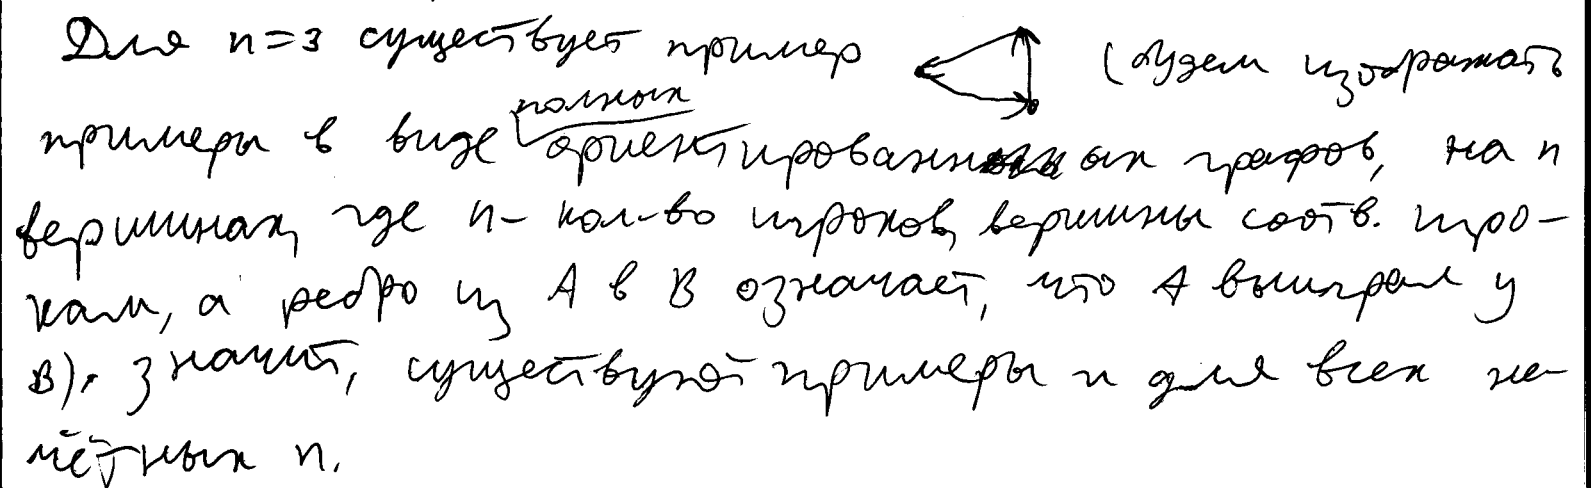 Для n=3 существует пример (будем изображать
примеры в виде полных ориентированных графов, на n
вершинах, где n - кол-во игроков, вершины соотв. игро-
кам, а ребро из A в B означает, что A выиграл у
B). Значит, существуют примеры и для всех не-
чётных n.